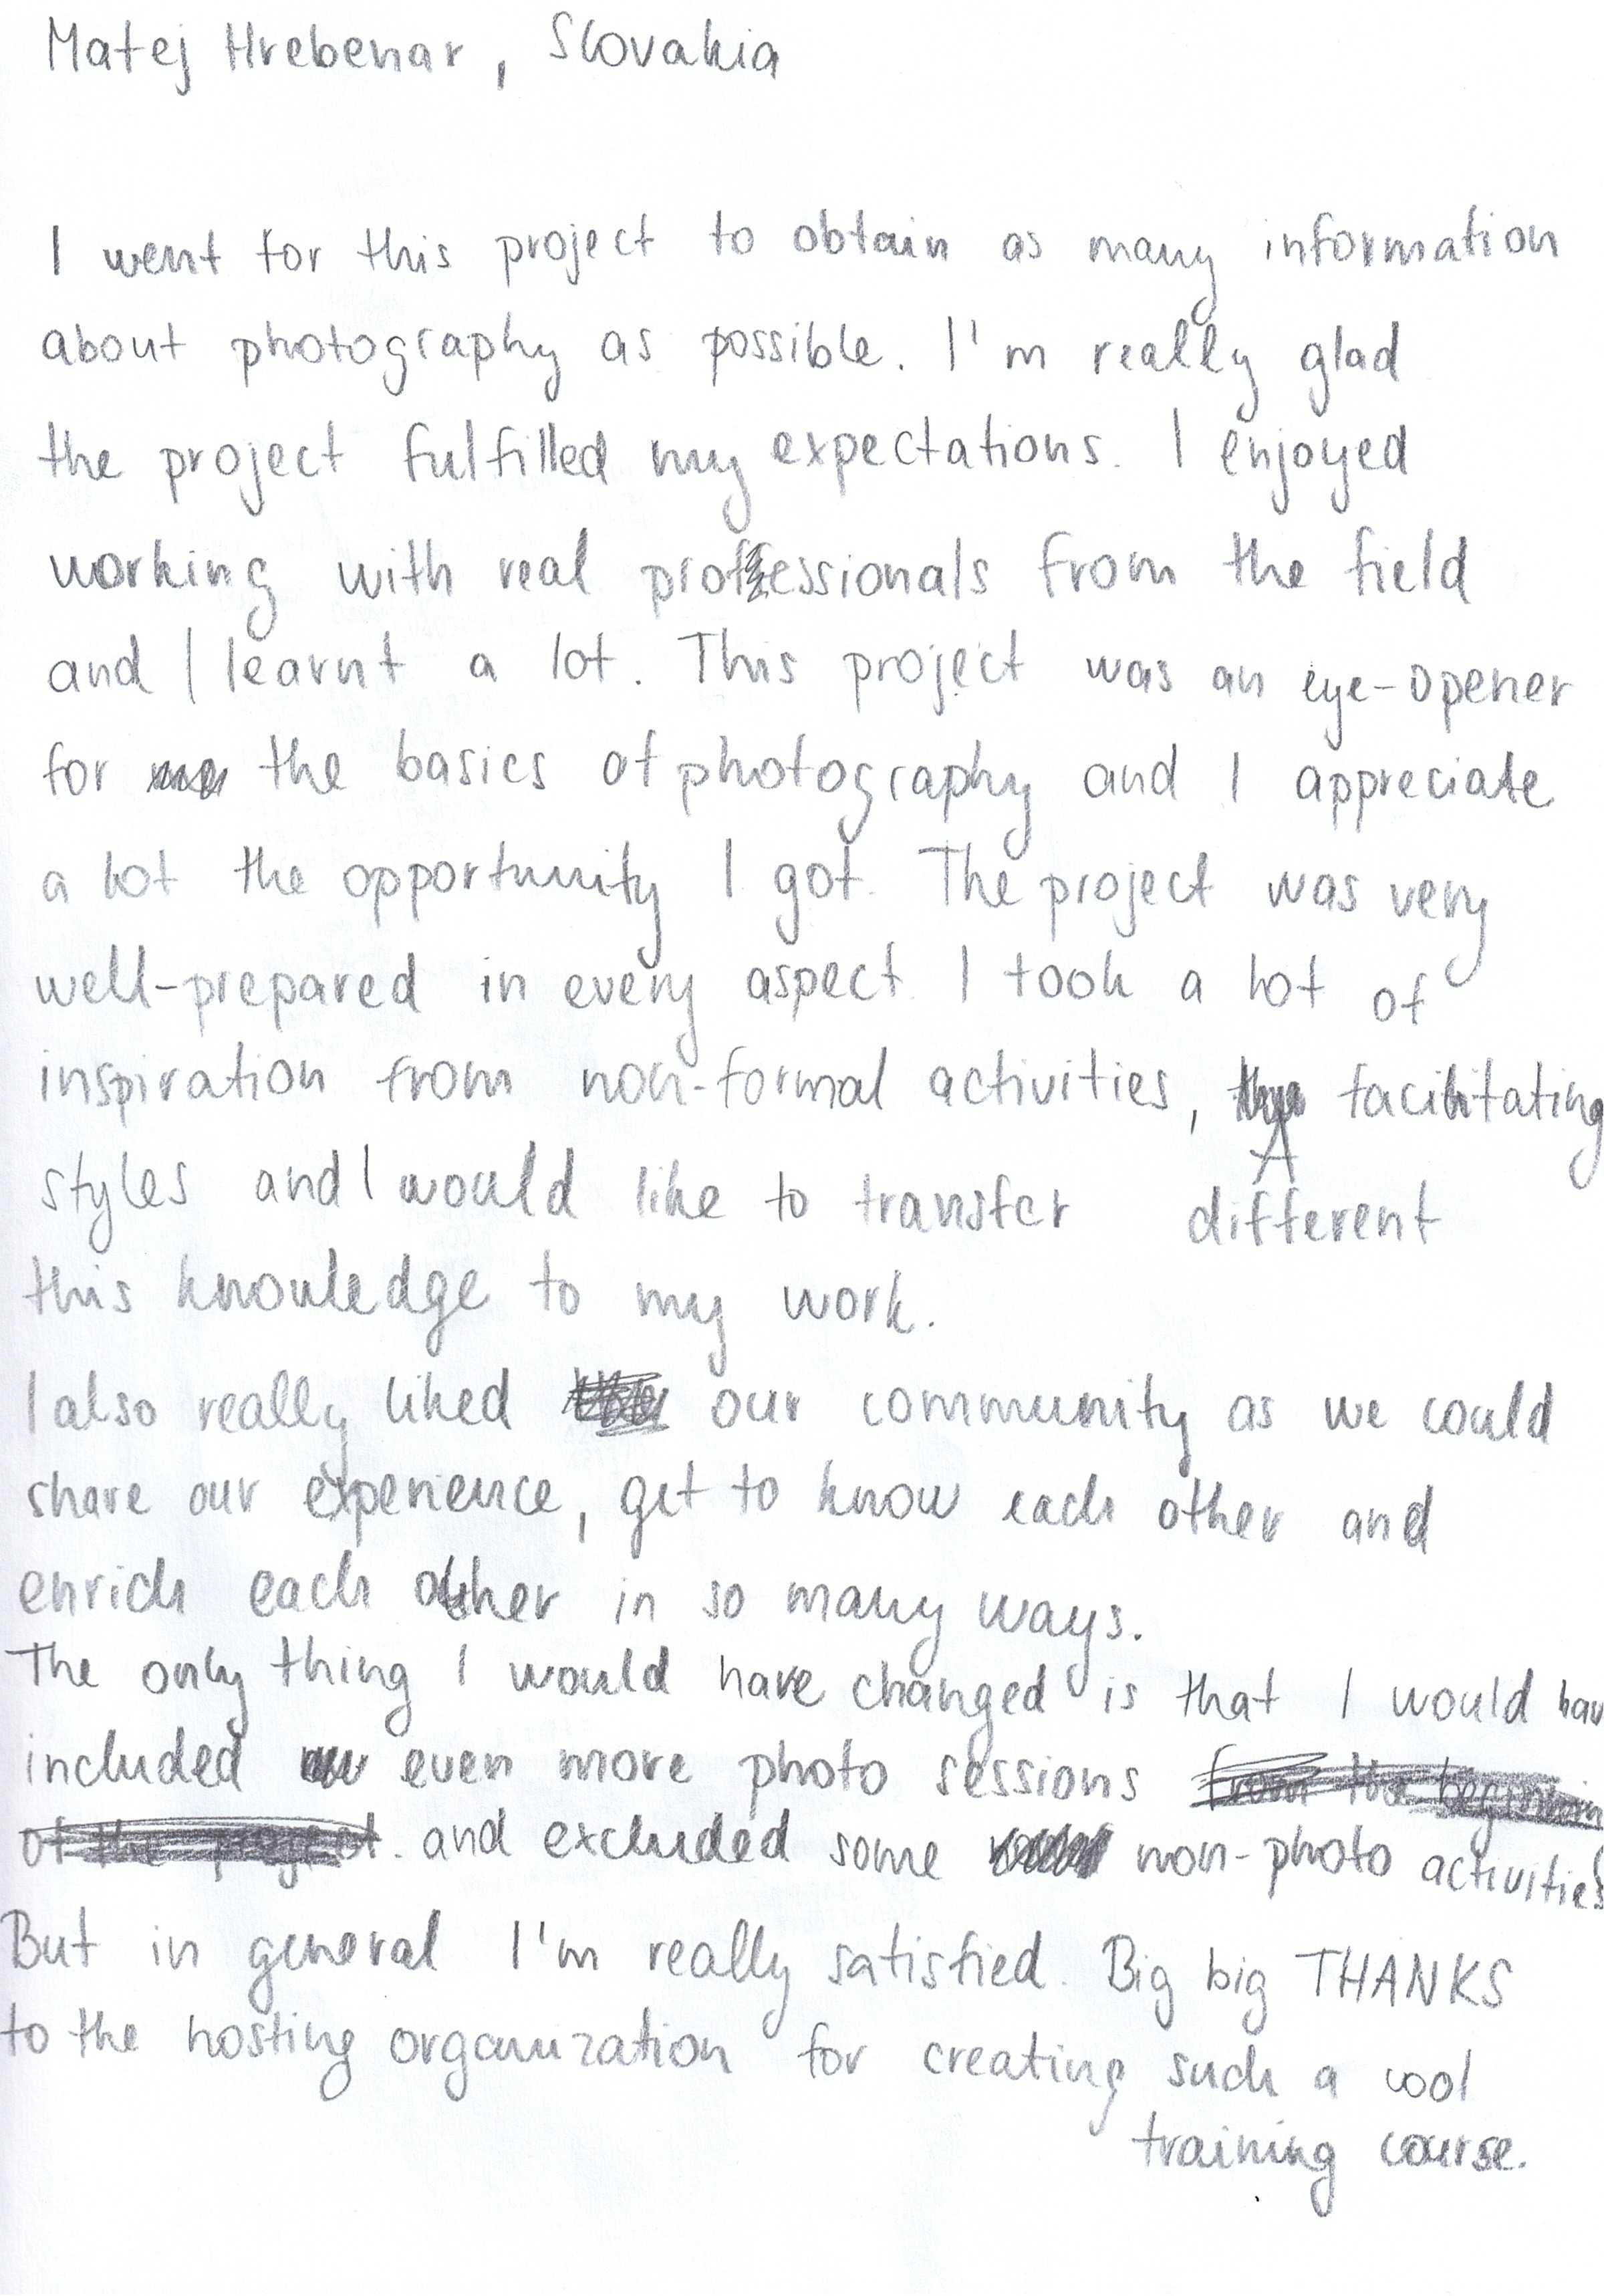 Matej Hrebenar, Slovakia
I went for this project to obtain as many information
about photography as possible. I'm really glad
the project fulfilled my expectations. I enjoyed
working with real professionals from the field
and I learnt a lot. This project was an eye-opener
for the basics of photography and I appreciate
a lot the opportunity I got. The project was very
well-prepared in every aspect. I took a lot of
inspiration from non-formal activities, facilitating
styles and I would like to transfer different
this knowledge to my work.
I also really liked our community as we could
share our experience, get to know each other and
enrich each other in so many ways.
The only thing I would have changed is that I would hav
included even more photo sessions from the beginnin
of the project. and excluded some non-photo activities
But in general I'm really satisfied. Big big THANKS
to the hosting organization for creating such a cool
training course.